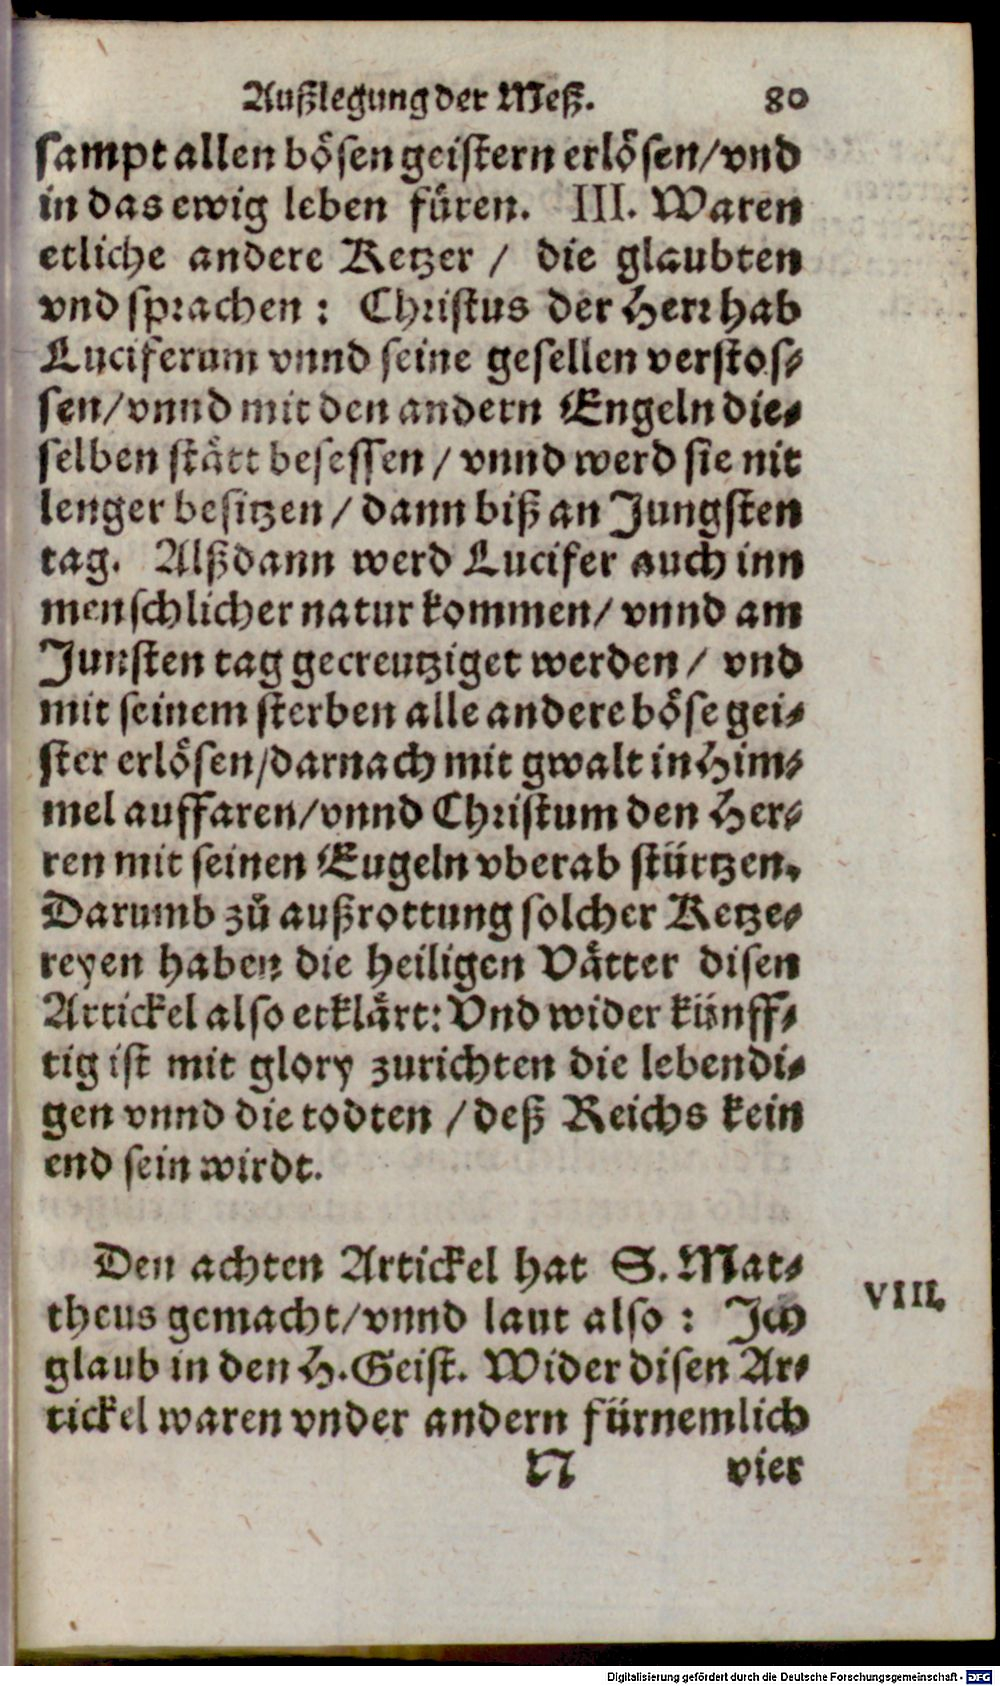 Außlegung der Meß. 80
sampt allen bösen geistern erlösen/vnd
in das ewig leben füren. III. Waren
etliche andere Ketzer / die glaubten
vnd sprachen: Christus der Herr hab
Luciferum vnnd seine gesellen verstos-
sen/vnnd mit den andern Engeln die-
selben stätt besessen / vnnd werd sie nit
lenger besitzen / dann biß an Jungsten
tag. Alßdann werd Lucifer auch inn
menschlicher natur kommen/ vnnd am
Junsten tag gecreutziget werden / vnd
mit seinem sterben alle andere böse gei-
ster erlösen/darnach mit gwalt in Him-
mel auffaren/vnnd Christum den Her-
ren mit seinen Eugeln vberab stürtzen.
Darumb zů außrottung solcher Ketze-
reyen haben die heiligen Vätter disen
Artickel also erklärt: Vnd wider künff-
tig ist mit glory zurichten die lebendi-
gen vnnd die todten / deß Reichs kein
end sein wirdt.
Den achten Artickel hat S. Mat-
theus gemacht/vnnd laut also : Ich
VIII.
glaub in den H. Geist. Wider disen Ar-
tickel waren vnder andern fürnemlich
N vier
Digitalisierung gefördert durch die Deutsche Forschungsgemeinschaft - DFG